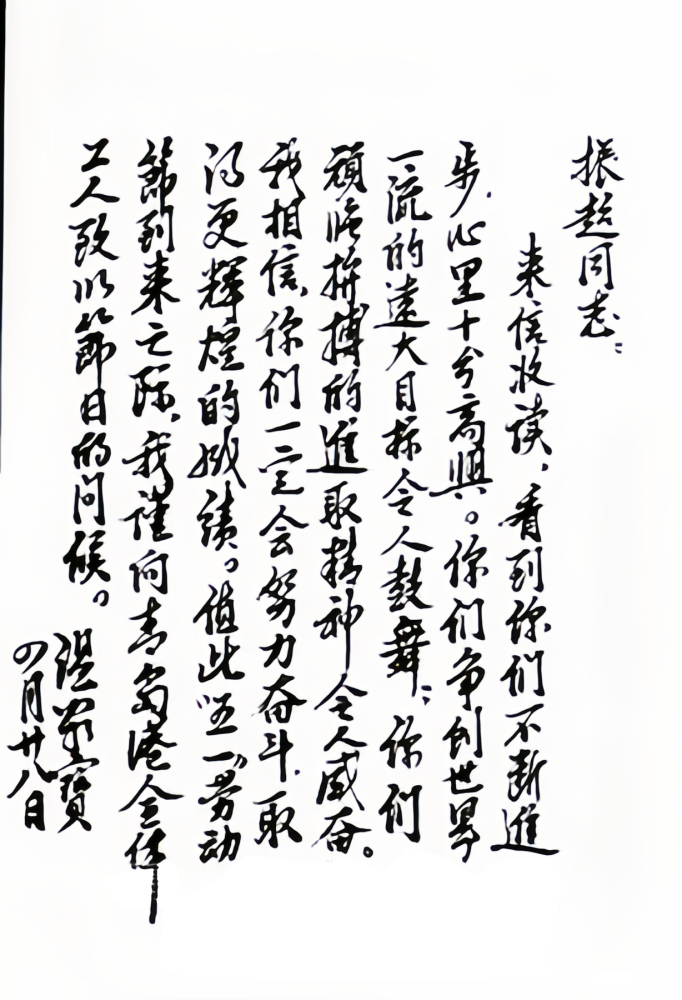 振超同志：
来信收读，看到你们不断進
步，心里十分高興。你们争创世界
一流的遠大目标令人鼓舞；你们
顽强拚搏的進取精神令人感奋。
我相信，你们一定会努力奋斗，取
得更輝煌的成绩。值此“五一”劳动
節到来之际，我谨向青岛港全体
工人致以節日的问候。
温家寳
四月廿八日